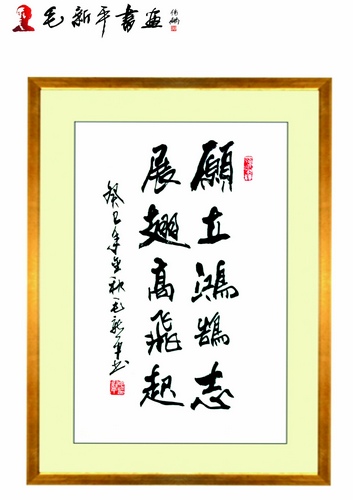 毛新平書画
願立鴻鵠志
展翅高飛起
癸巳年金秋毛新平书